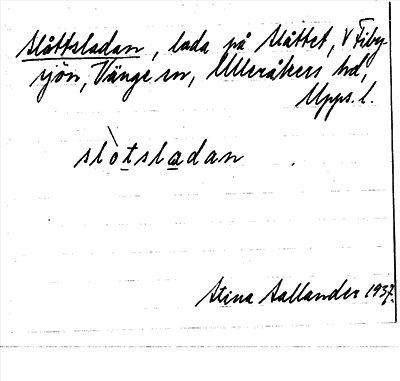 Slåttsladan, lada på Slåttet, V Fiby-
sjön, Vänge sn, Ulleråkers hd,
Upps. l.
slò̀tsladan
Stina Sallander 1937.